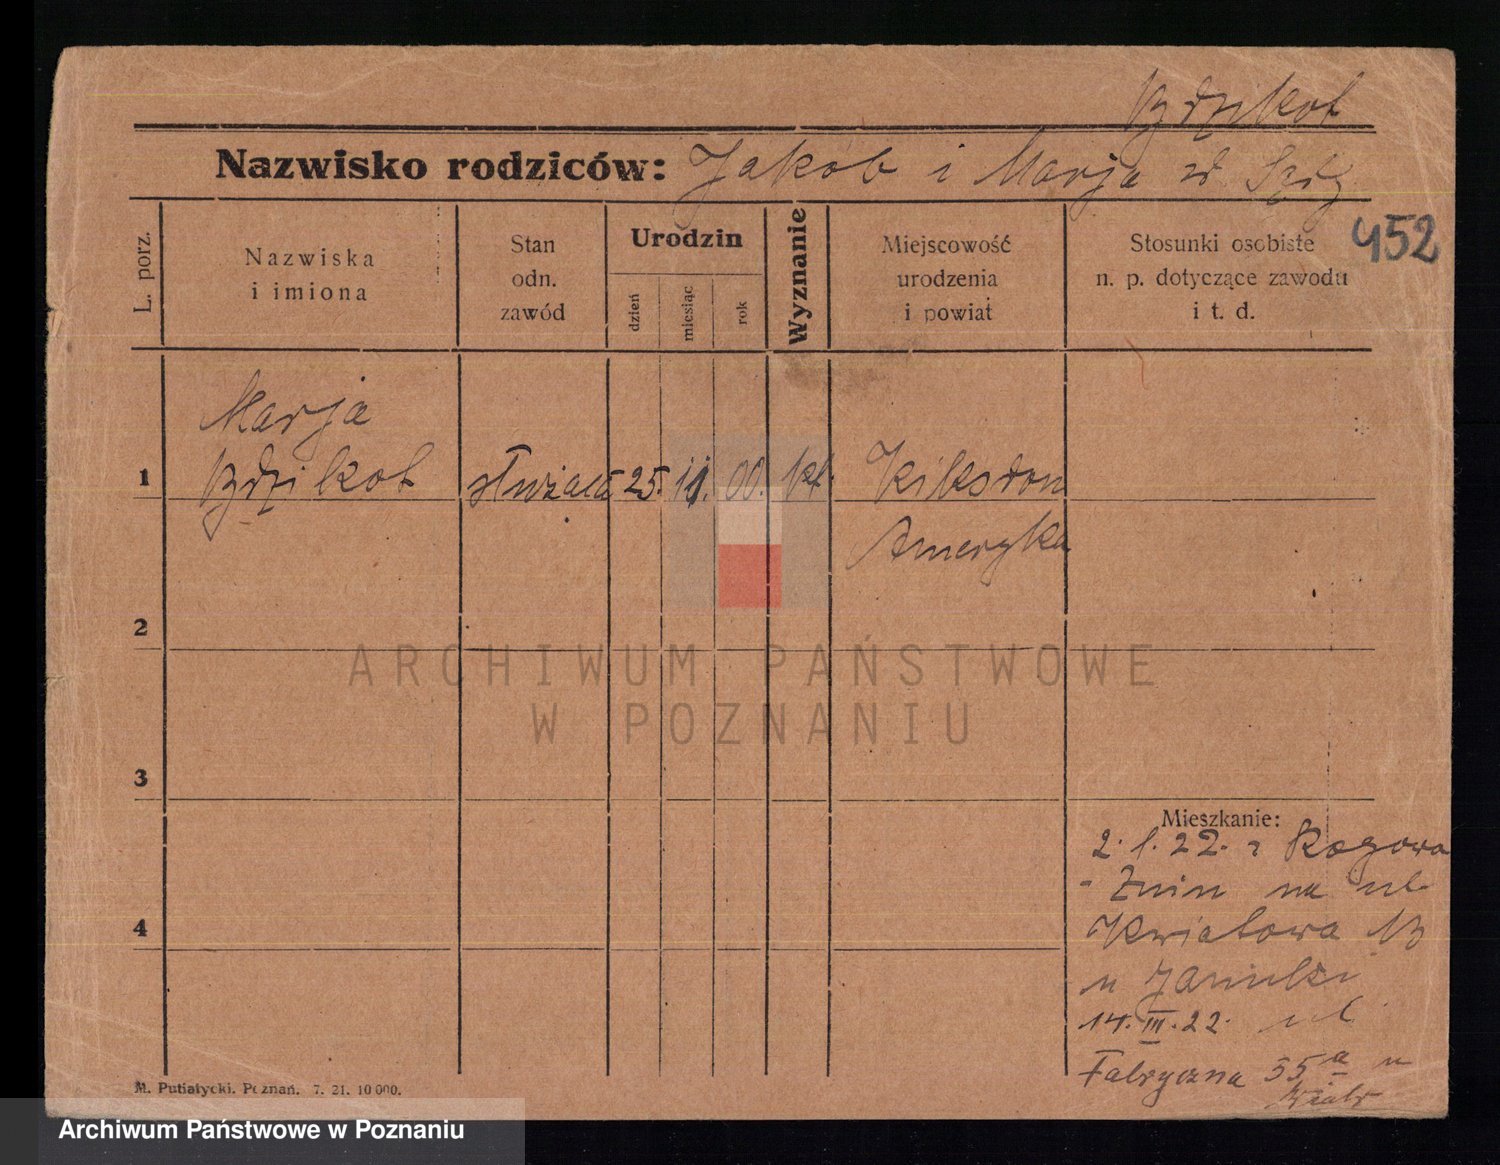 Bździkot
Nazwisko rodziców: Jakób i Marja
452
L. porz.
Nazwiska
i imiona
Stan
odn.
zawód
Urodzin
dzień
miesiąc
rok
Wyznanie
Miejscowość
urodzenia
i powiat
Stosunki osobiste
n. p. dotyczące zawodu
i t. d.
Marja
1 Bździkot służąca 25. 11. 00. kt.
Ameryka
2
3
4
Mieszkanie:
2. 1. 22. z Rogowa
- Żnin na ul.
Kwiatowa 13
u
14. III. 22. ul
Fabryczna 35 a u
M. Putiatycki. Poznań. 7. 21. 10 000.
ARCHIWUM PAŃSTWOWE
W POZNANIU
Archiwum Państwowe w Poznaniu